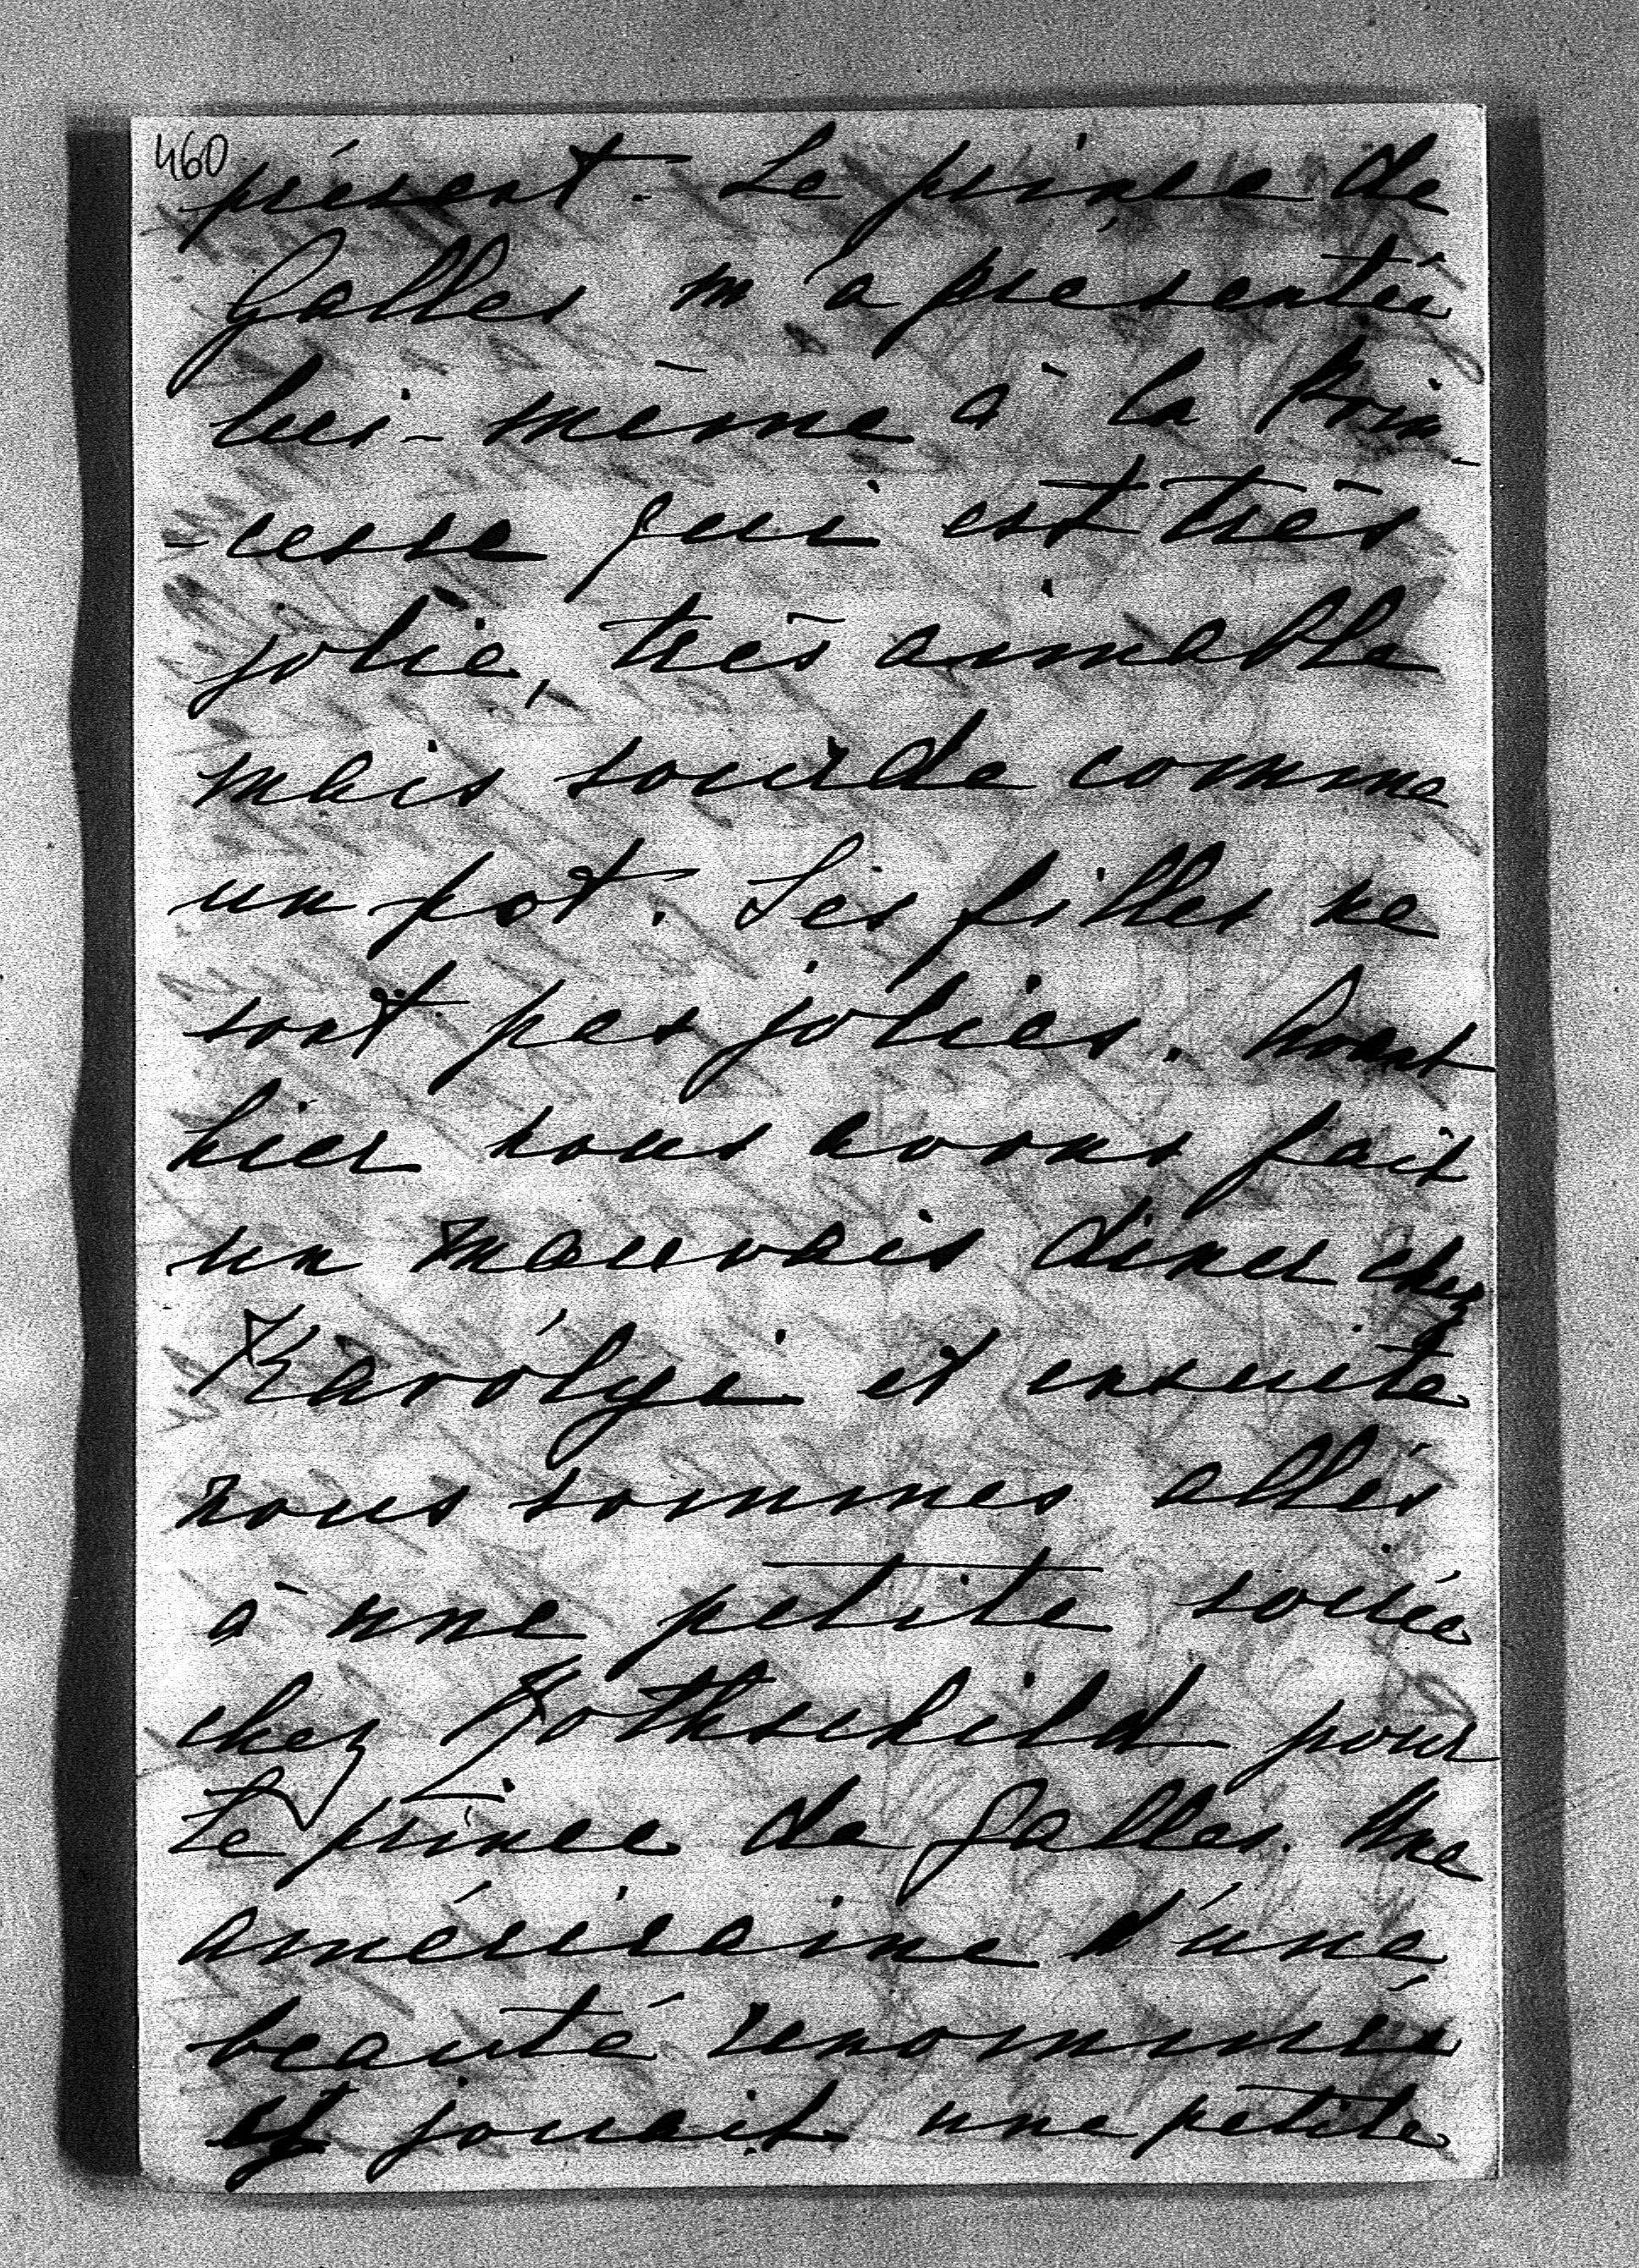 460
présent. Le prince de
Galles m'a présentée
lui-même à la Prin-
-cesse qui est très
jolie, très aimable
mais sourde comme
un pot. Ses filles ne
sont pas jolies. Avant
hier nous avons fait
un mauvais diner chez
Károlyi et ensuite
nous sommes allés
à une petite soirée
chez Rothschild pour
le prince de Galles. Une
américaine d'une
beauté renommée
y jouait une petite